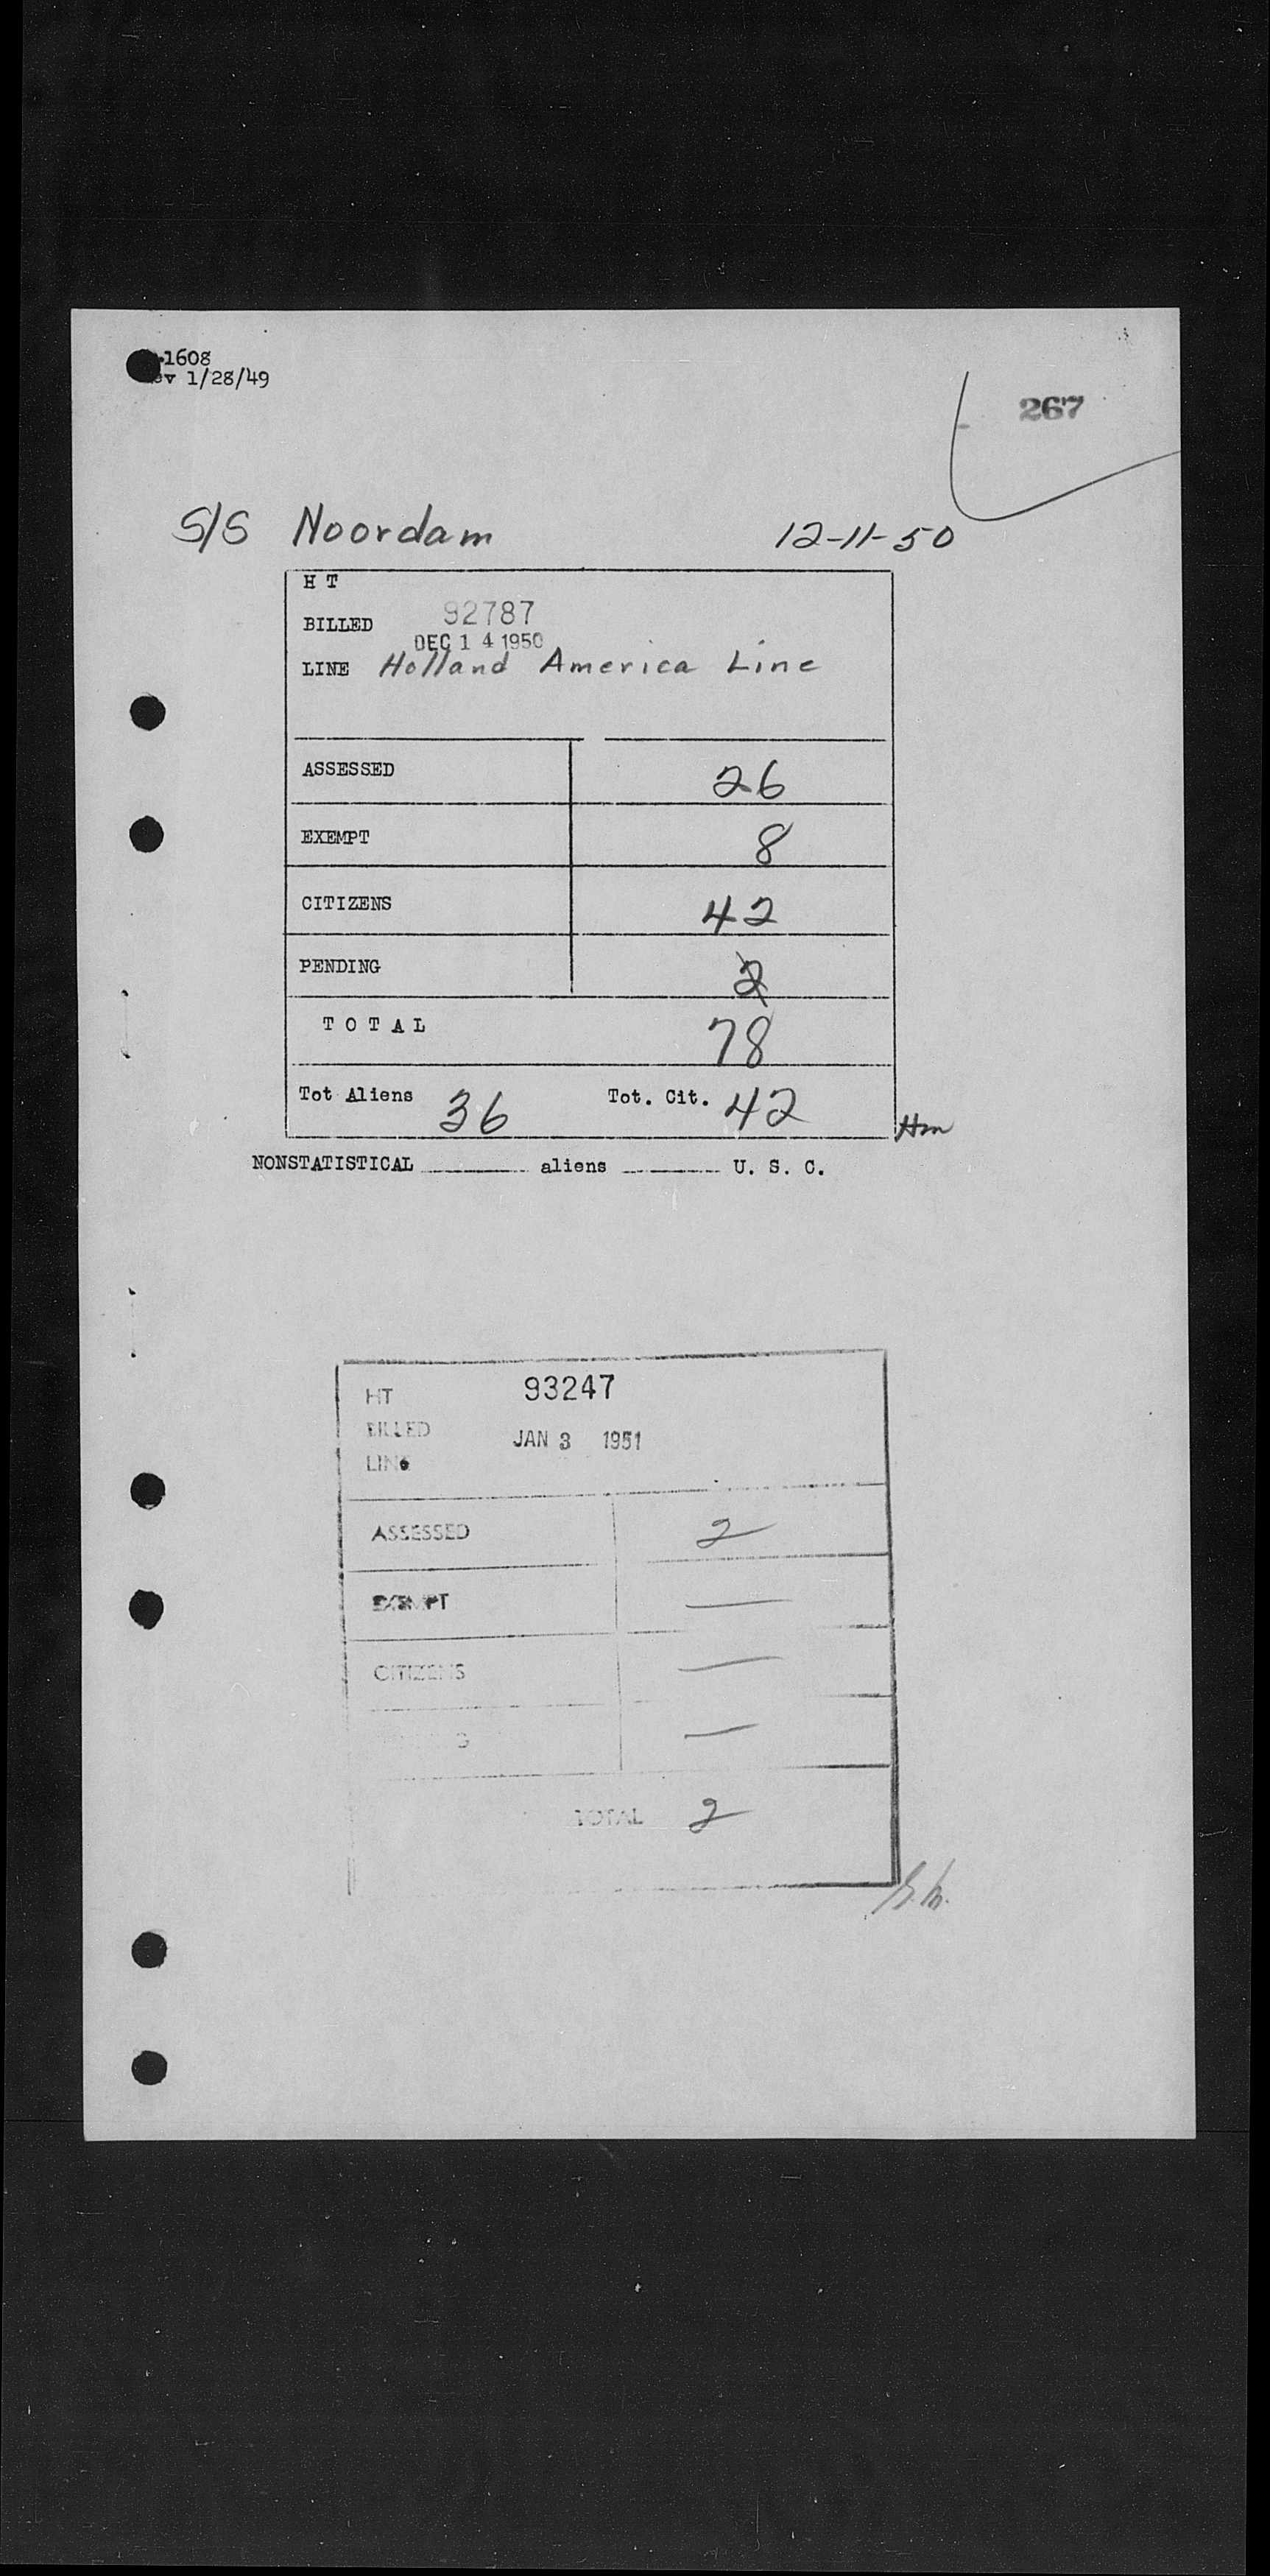 1608
ev 1/28/49
267
S/S Noordam 12-11-50
H T
92787
BILLED
DEC 14 1950
LINE Holland America Line
ASSESSED 26
EXEMPT 8
CITIZENS 42
PENDING 2
TOTAL 78
Tot Aliens 36 Tot. Cit. 42
Hm
NONSTATISTICAL aliens U. S. C.
HT 93247
BILLED
JAN 3 1951
LINE
ASSESSED 2
EXEMPT —
CITIZENS —
G —
TOTAL 2